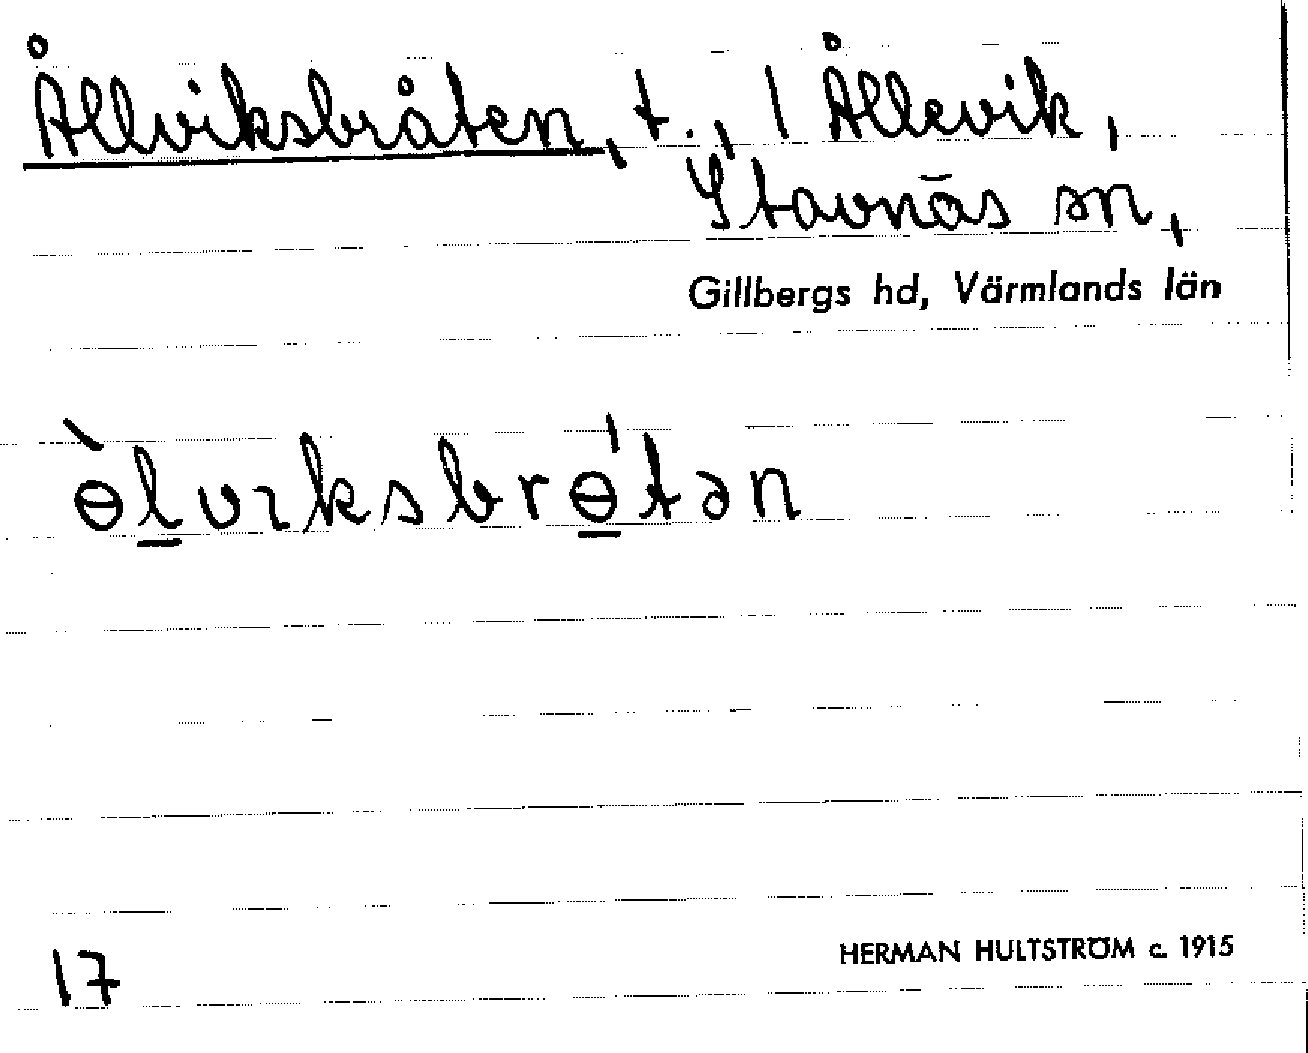 Ållviksbråten, t., / Ållevik,
Stavnäs sn,
Gillbergs hd, Värmlands län
ɵ̀lvɪksbrɵ́tən
17
HERMAN HULTSTRÖM c. 1915